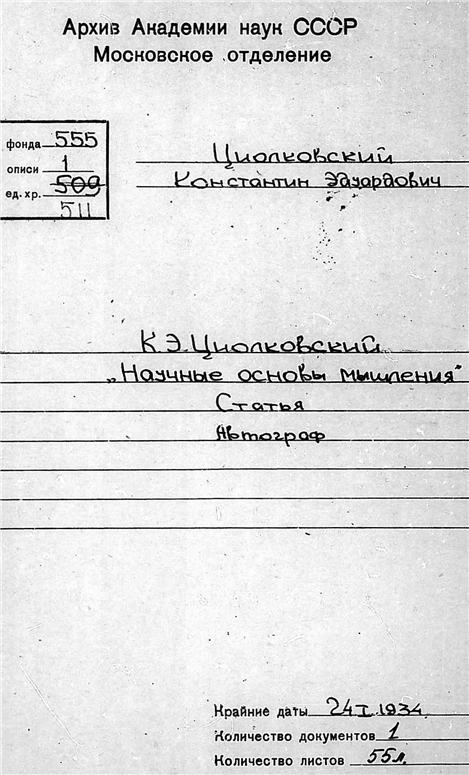 Архив Академии наук СССР
Московское отделение
фонда 555
описи 1
ед. хр. 509
511
Циолковский
Константин Эдуардович
К.Э.Циолковский
„Научные основы мышления"
Статья
Автограф
Крайние даты 24 I 1934.
Количество документов 1
Количество листов 55л.